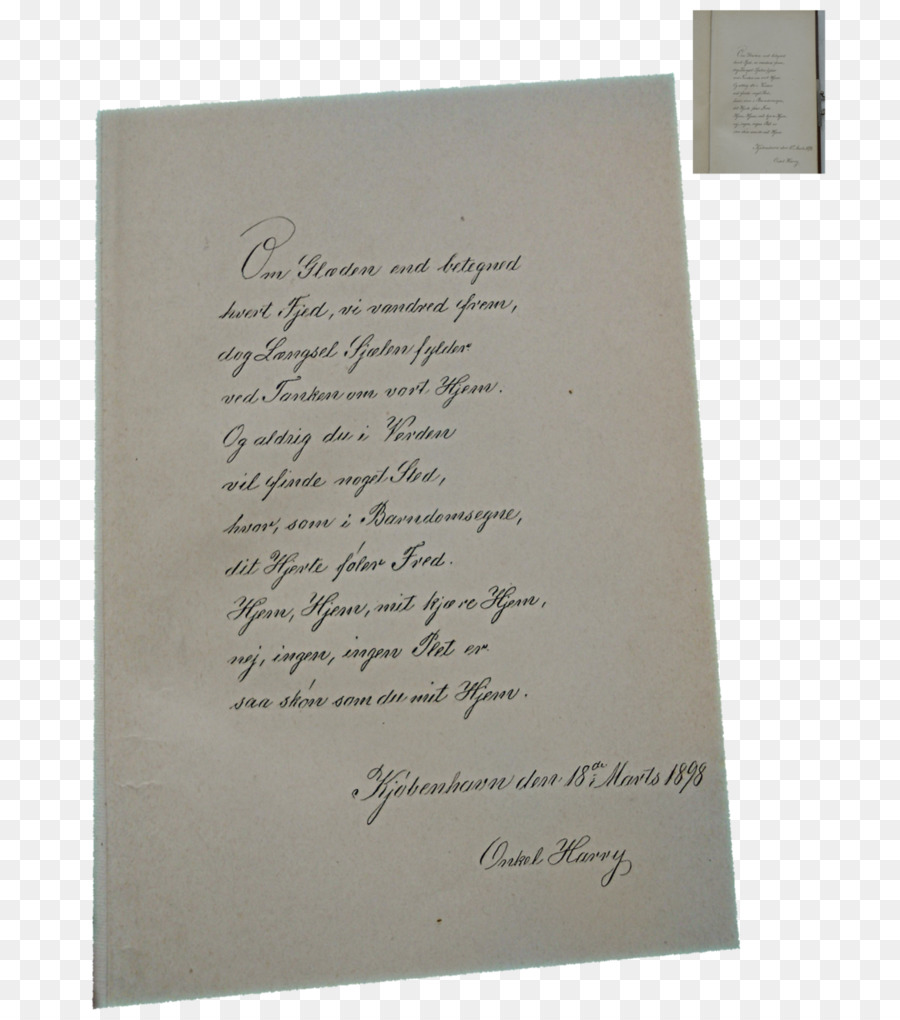 Om Glæden end betegned
hvert Fjed, vi vandred frem,
dog Længsel Sjælen fylder
ved Tanken om vort Hjem.
Og aldrig du i Verden
vil finde noget Sted,
hvor, som i Barndomsegne,
dit Hjerte føler Fred.
Hjem, Hjem, mit kjære Hjem,
nej, ingen, ingen Plet er
saa skøn som du mit Hjem.
Kjøbenhavn den 18de Marts 1898
Onkel Harry